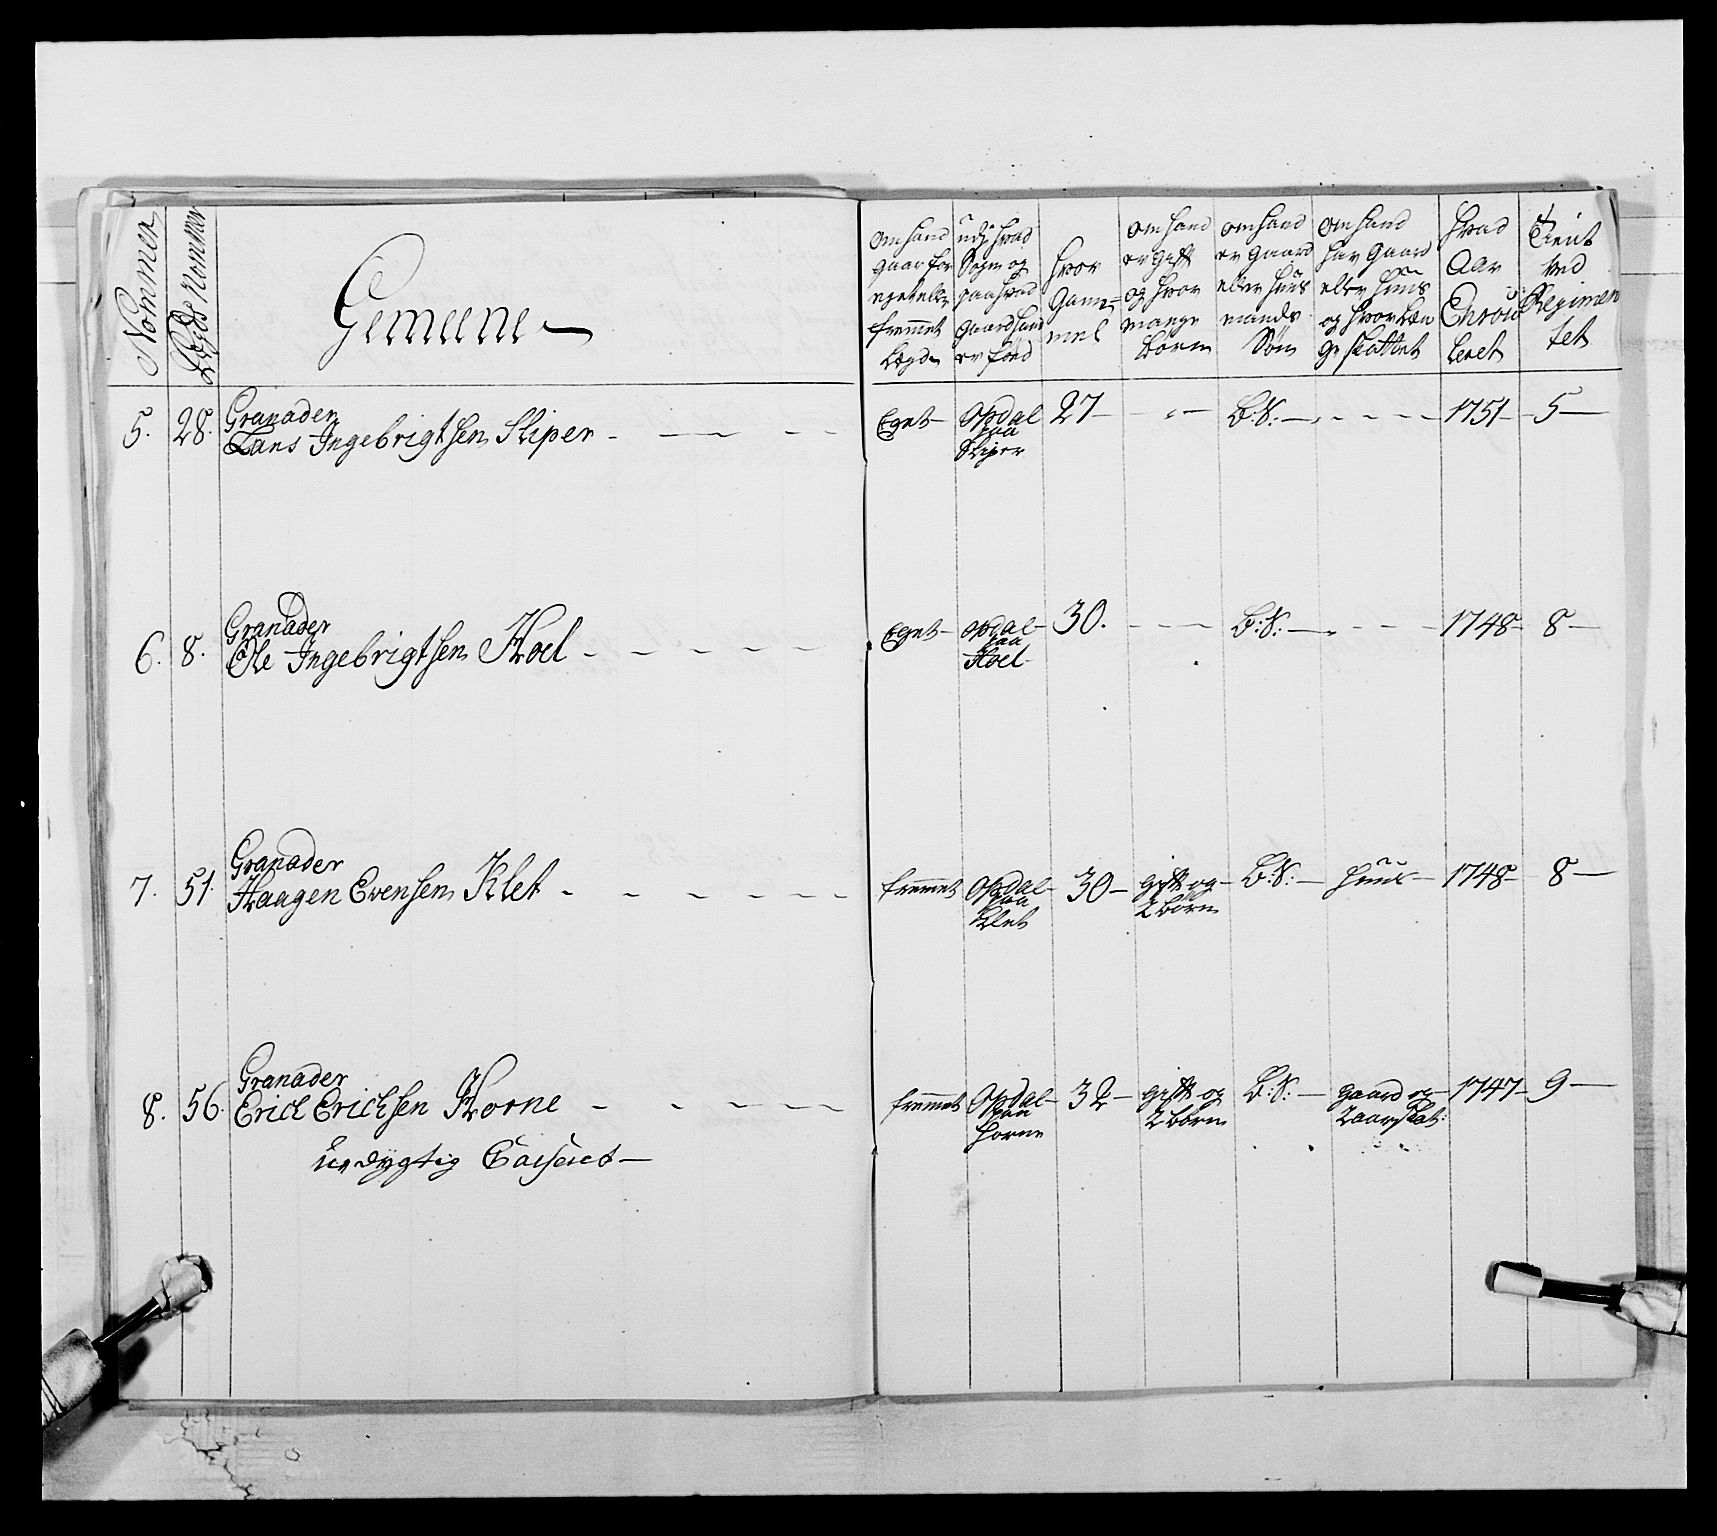 Nommer
Legds Nommer
Gemeene
om hand gaar for eget eller fremmet Legde
udj hvad Sogn og paa hvad Gaard hand er fød
hvor Gammel
om hand er gift og hvor mange Børn
om hand er Gaard eller Huus mands Søn
om hand har Gaard eller Huus og hvor længe skattet
hvad Aar Enroulleret
Tient ved Regimentet
5. 28. Granader
Hans Ingebrigtsen Stiper - Eget - Opdal paa Stiper 27 - B:S: - 1751 - 5 -
6. 8. Granader
Ole Ingebrigtsen Hoel - Eget - Opdal paa Hoel 30. B:S: - 1748 - 8 -
7. 51. Granader
Haagen Evensen Klet - fremmet Opdal paa Klet 30 - gift og 2 børn B:S: - Huus - 1748 - 8 -
8. 56. Granader
Erick Erichsen Horne - fremmet Opdal paa Horne 32 - gift og 2 børn B:S: - gaard og 2 aar skat: 1747 - 9 -
udygtig Casseret -